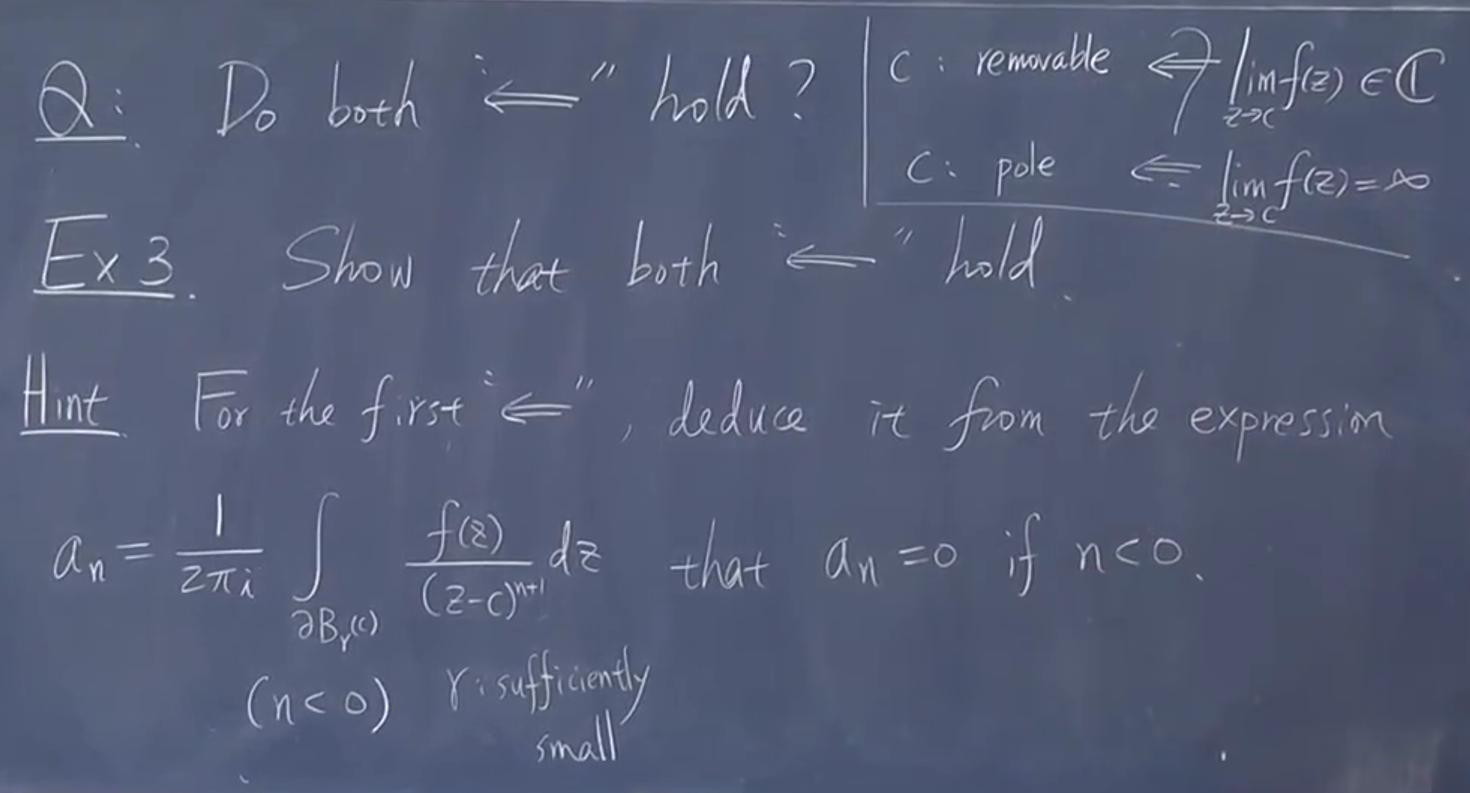 Q: Do both "⇐" hold?
C : removable ⇐ lim f(z) ∈ ℂ
z→c
C : pole ⇐ lim f(z) = ∞
z→c
Ex 3. Show that both "⇐" hold.
Hint For the first "⇐", deduce it from the expression
aₙ = 1/(2πi) ∫_{∂Bᵣ(c)} f(z)/(z-c)ⁿ⁺¹ dz that aₙ = 0 if n<0.
(n<0) r : sufficiently
small